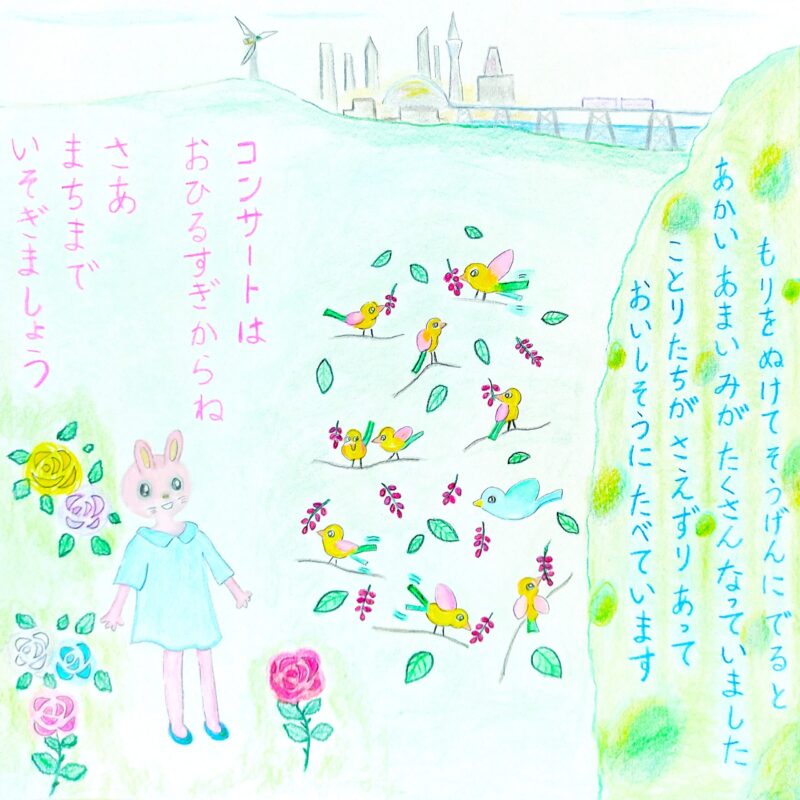 もりをぬけてそうげんに でると
あかい あまい みが たくさん なっていました
ことりたちが さえずり あって
おいしそうに たべています
コンサートは
おひるすぎからね
さあ
まちまで
いそぎましょう